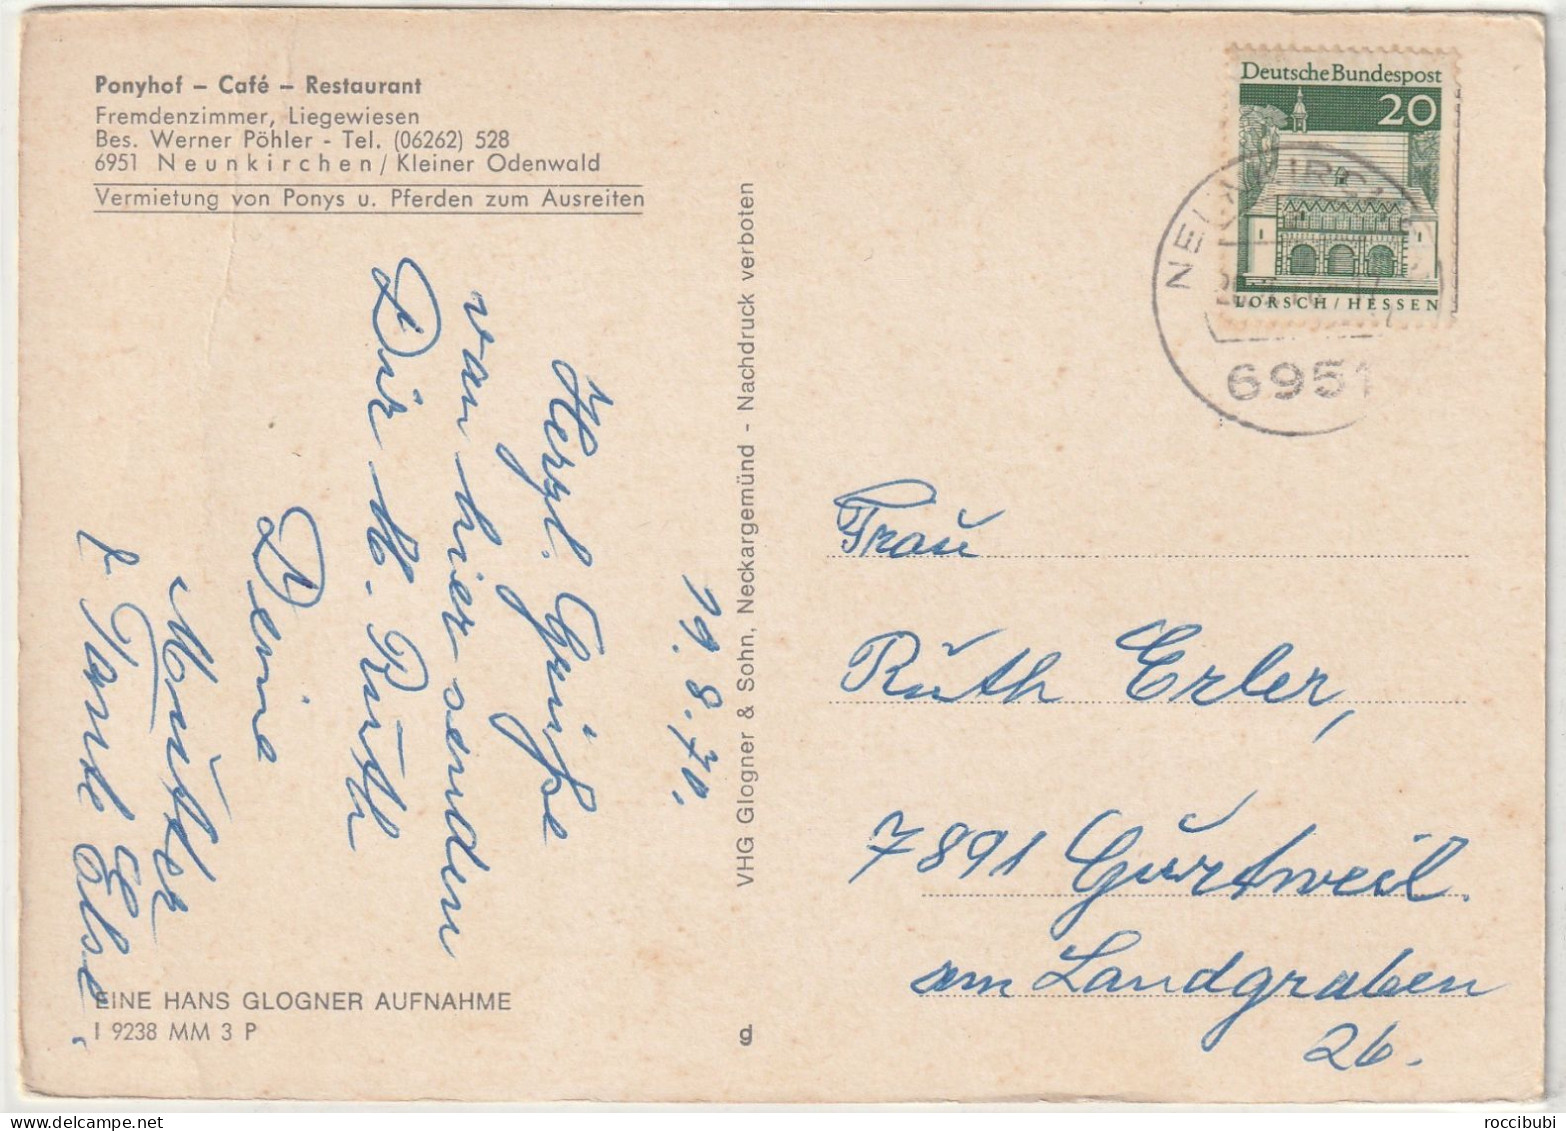 Ponyhof – Café – Restaurant
Fremdenzimmer, Liegewiesen
Bes. Werner Pöhler - Tel. (06262) 528
6951 Neunkirchen/Kleiner Odenwald
Vermietung von Ponys u. Pferden zum Ausreiten
19.8.70.
Herzl. Grüße
von hier senden
Dir l. Ruth
Deine
Mutter
& Tante Else
EINE HANS GLOGNER AUFNAHME
I 9238 MM 3 P
VHG Glogner & Sohn, Neckargemünd - Nachdruck verboten
g
Deutsche Bundespost
20
LORSCH/HESSEN
6951
Frau
Ruth Erler,
7891 Gurtweil.
am Landgraben
26.
roccibubi